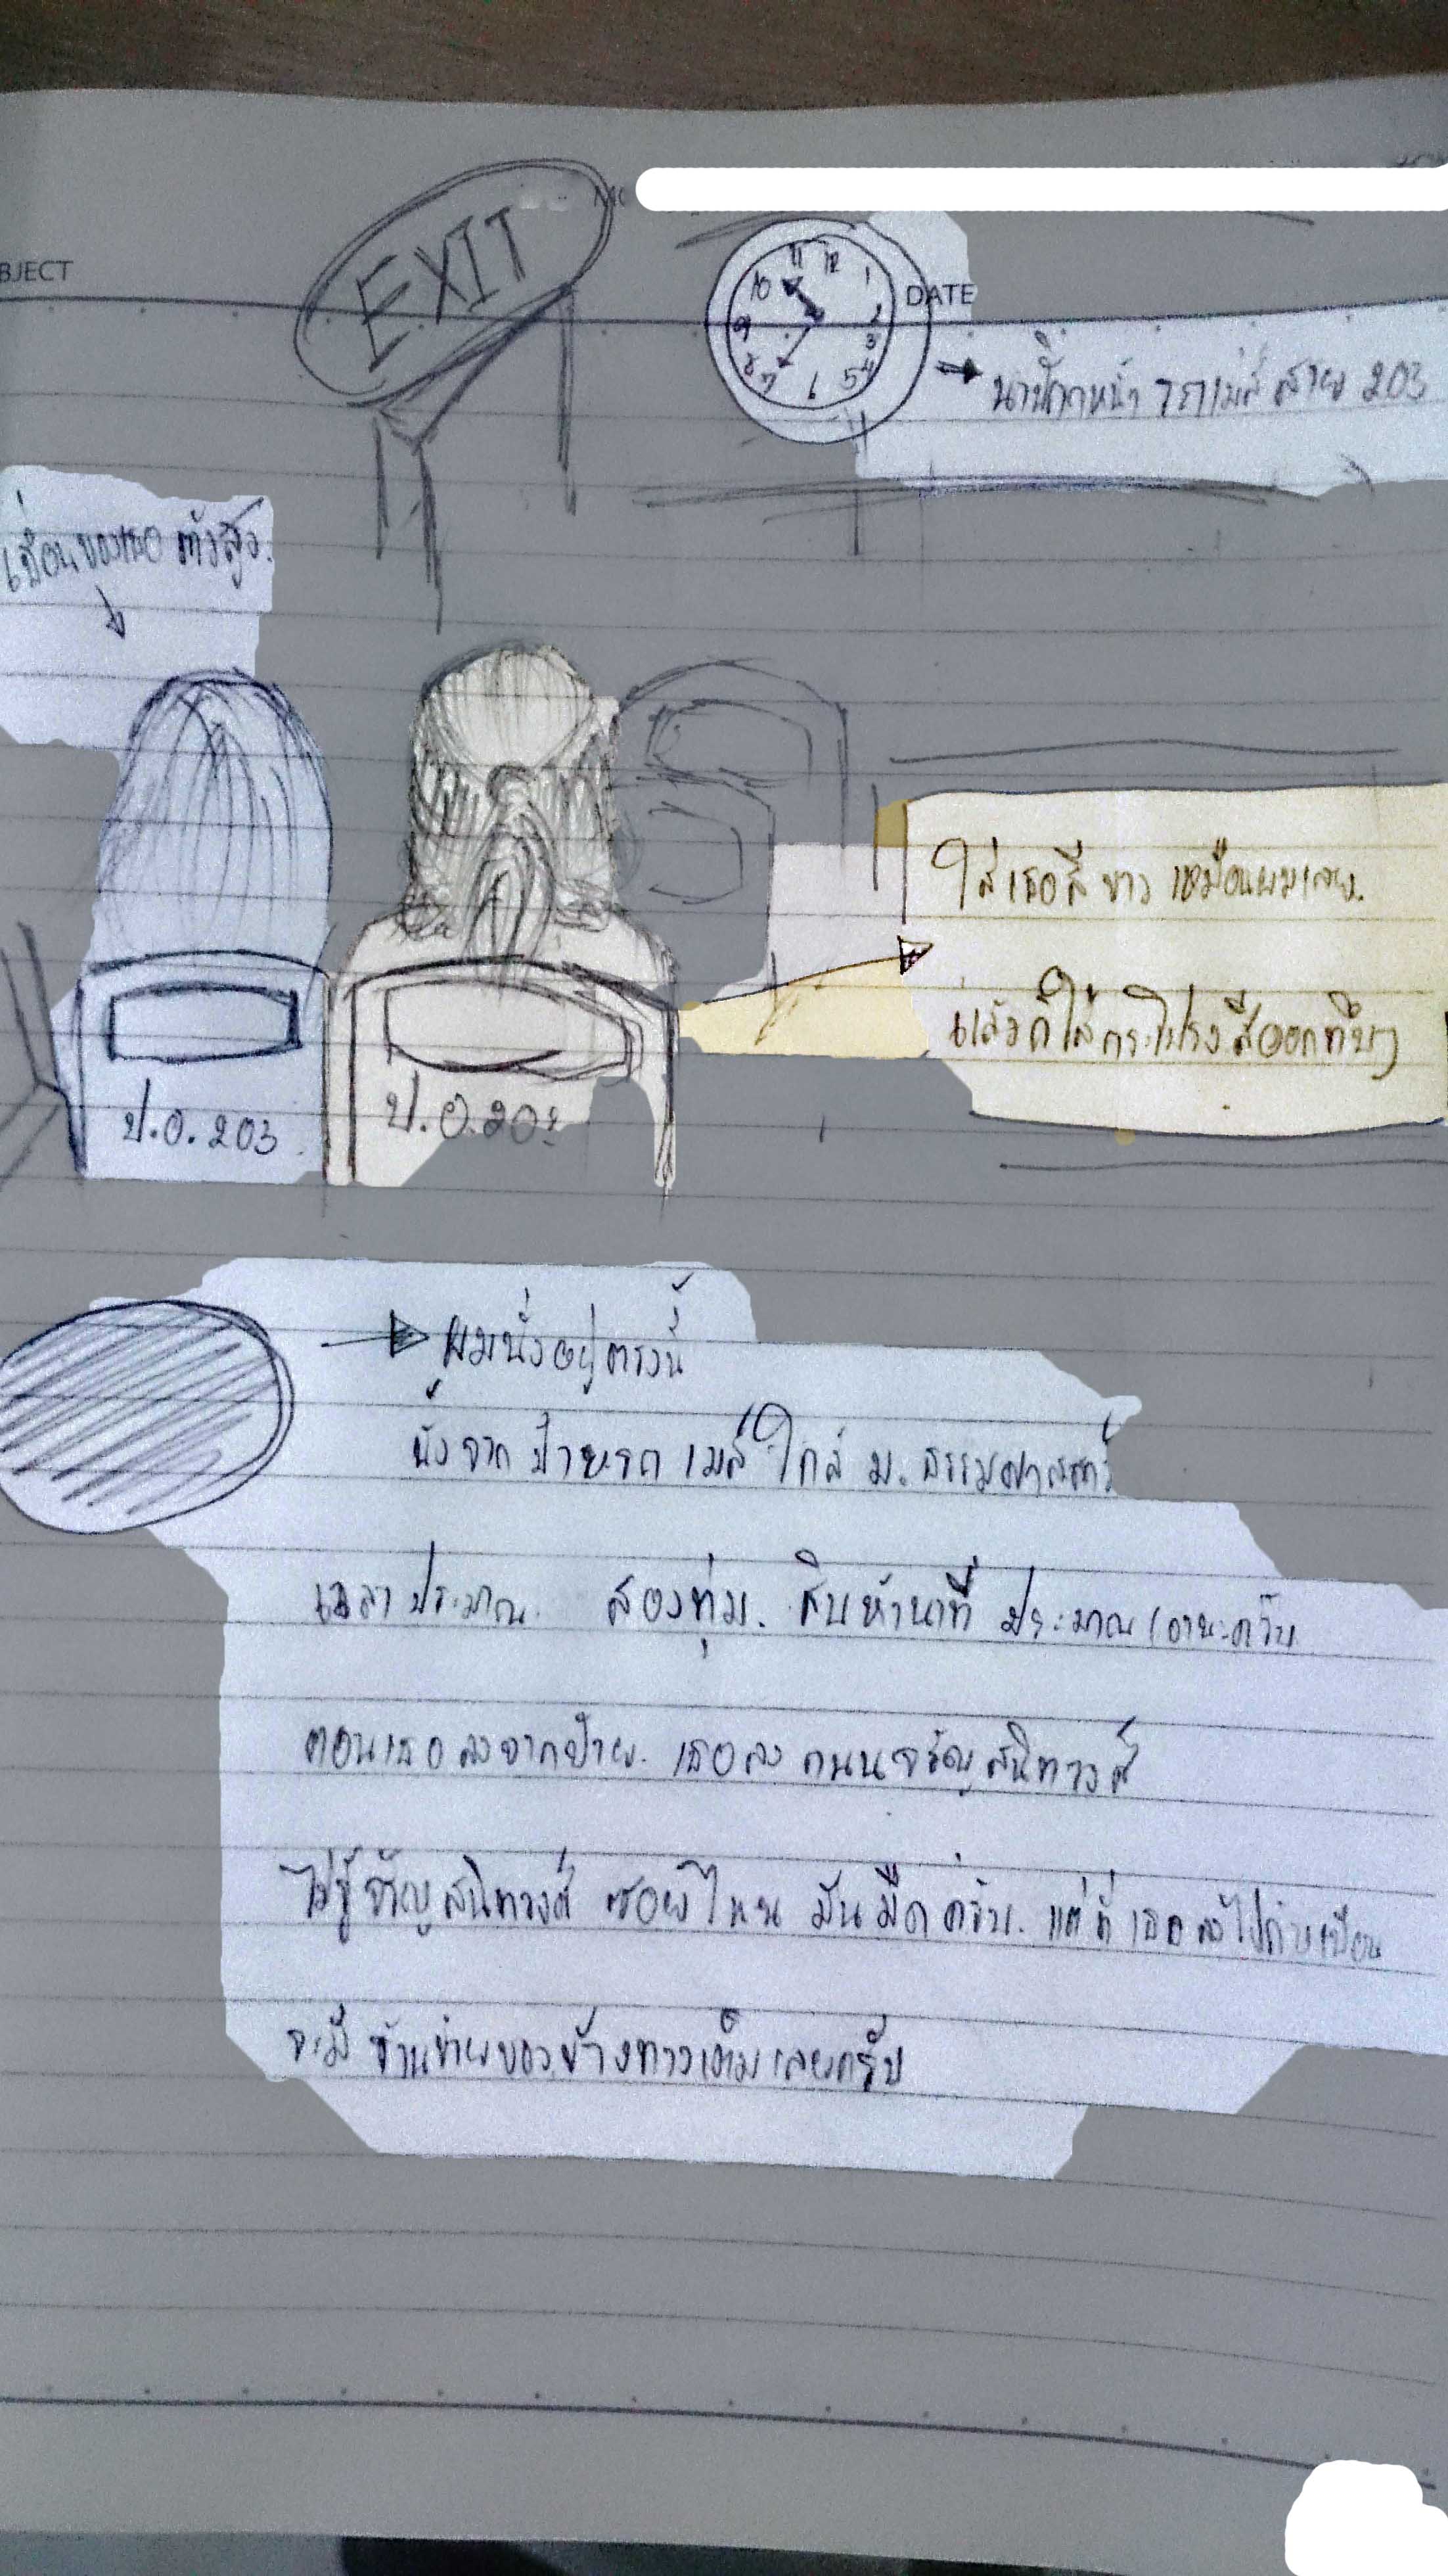 EXIT
BJECT
11 12 1
10 2
9 3
8 4
7 6 5
DATE
นาฬิกาหน้า รถเมล์ สาย 203
เพื่อนของเธอ ตัวสูง.
ใส่เธอสีขาว เหมือนผมเลย.
แล้วก็ใส่กระโปรงสีออกทึบๆ
ป.อ. 203
ป.อ.20
ผมนั่งอยู่ตรงนี้
นั่งจาก ป้ายรถ เมล์ ใกล้ ม. ธรรมศาสตร์
เวลา ประมาณ. สองทุ่ม. สิบห้านาที ประมาณ
ตอนเธอ ลงจากป้าย. เธอ ลง ถนน จรัญ สนิทวงศ์
ไม่รู้ จรัญ สนิทวงศ์ ซอยไหน มันมืด ครับ. แต่ที่ เธอ ลงไปกับเพื่อน
จะมี ร้านขายของข้างทางเต็ม เลยครับ